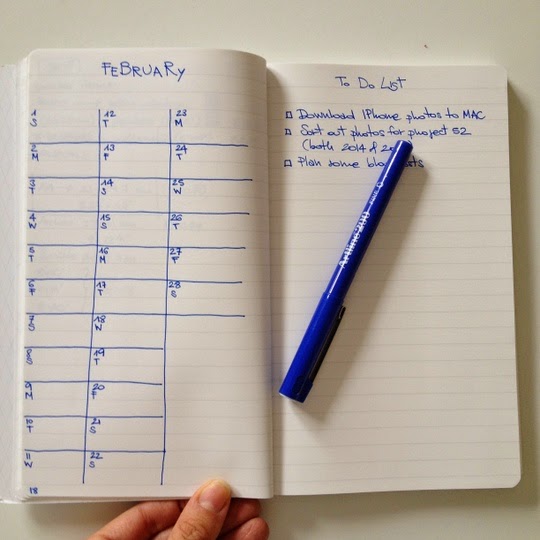 FEBRUARY
1
S
2
M
3
T
4
W
5
T
6
F
7
S
8
S
9
M
10
T
11
W
12
T
13
F
14
S
15
S
16
M
17
T
18
W
19
T
20
F
21
S
22
S
23
M
24
T
25
W
26
T
27
F
28
S
18
To Do List
Download IPhone photos to MAC
Sort out photos for project 52
(both 2014 &
Plan some
Artline 200